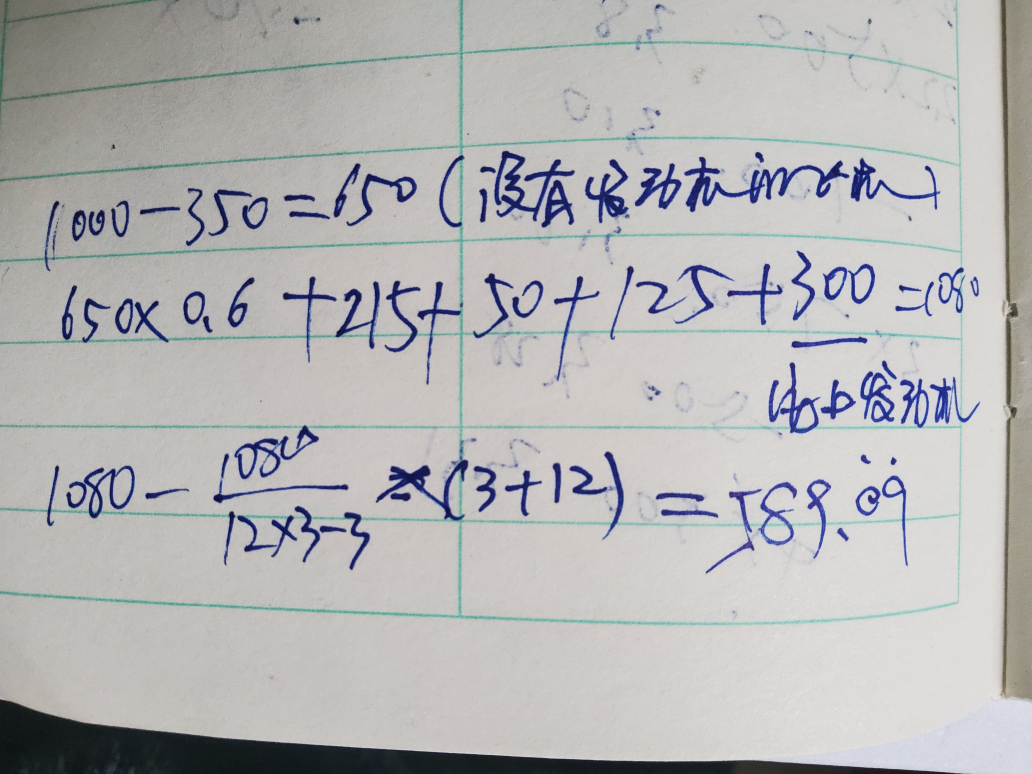 1000-350=650(没有发动机的飞机)
650×0.6+215+50+125+300=1080
发动机
1080-1080/(12×3-3)×(3+12)=589.0̈9̈